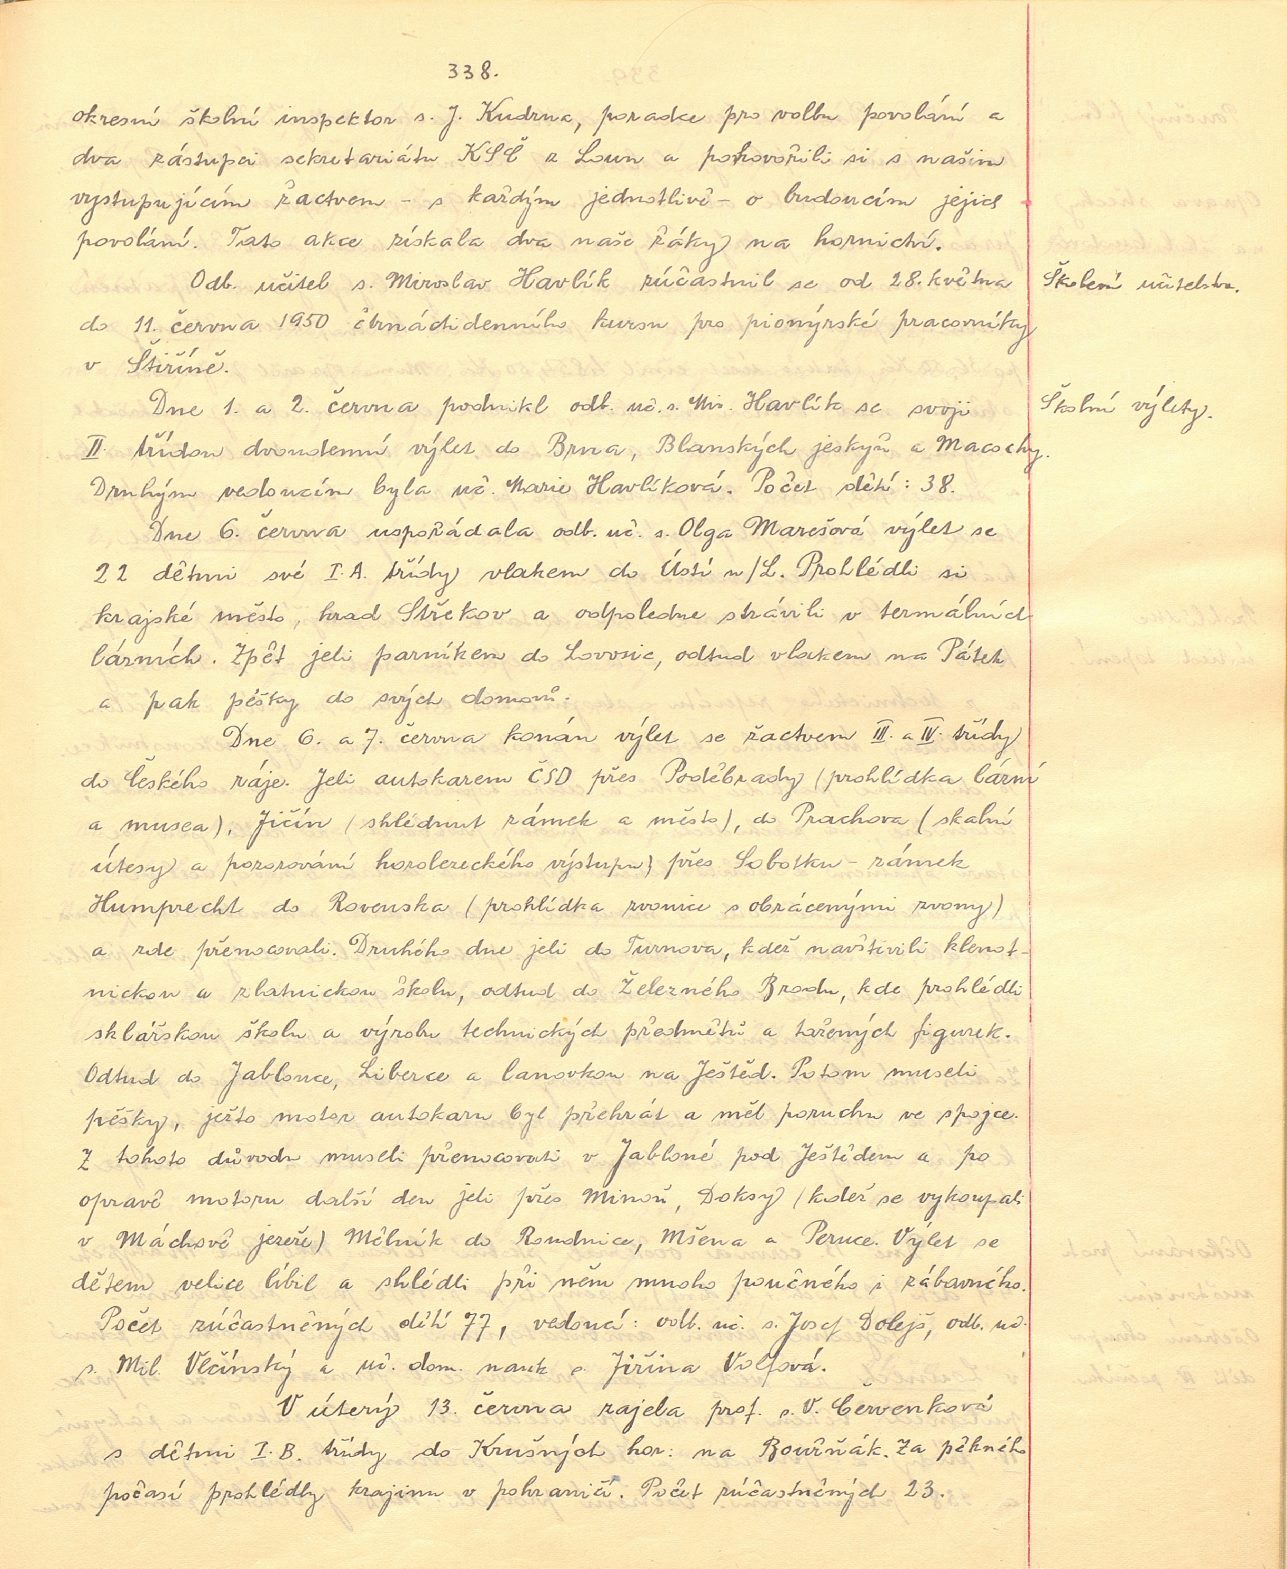 338.
okresní školní inspektor s. J. Kudrna, poradce pro volbu povolání a
dva zástupci sekretariátu KSČ z Loun a pohovořili si s naším
vystupujícím žactvem - s každým jednotlivě - o budoucím jejich
povolání. Tato akce získala dva naše žáky na hornictví.
Odb. učitel s. Miroslav Havlík zúčastnil se od 28. května
Školení učitelstva.
do 11. června 1950 čtrnáctidenního kursu pro pionýrské pracovníky
v Štiříně.
Dne 1. a 2. června podnikl odb. uč. s. Mir. Havlík se svojí
Školní výlety.
II. třídou dvoudenní výlet do Brna, Blanských jeskyň a Macochy.
Druhým vedoucím byla uč. Marie Havlíková. Počet dětí: 38.
Dne 6. června uspořádala odb. uč. s. Olga Marešová výlet se
22 dětmi své I. A. třídy vlakem do Ústí n/L. Prohlédli si
krajské město, hrad Střekov a odpoledne strávili v termálních
lázních. Zpět jeli parníkem do Lovosic, odtud vlakem na Pátek
a pak pěšky do svých domovů.
Dne 6. a 7. června konán výlet se žactvem III. a IV. třídy
do Českého ráje. Jeli autokarem ČSD přes Poděbrady (prohlídka lázní
a musea), Jičín (shlédnut zámek a město), do Prachova (skalní
útesy a pozorování horolezeckého výstupu) přes Sobotku - zámek
Humprecht do Rovenska (prohlídka zvonice s obrácenými zvony)
a zde přenocovali. Druhého dne jeli do Turnova, kdež navštívili klenot-
nickou a zlatnickou školu, odtud do Železného Brodu, kde prohlédli
sklářskou školu a výrobu technických předmětů a tažených figurek.
Odtud do Jablonce, Liberce a lanovkou na Ještěd. Potom museli
pěšky, ježto motor autokaru byl přehrát a měl poruchu ve spojce.
Z tohoto důvodu museli přenocovati v Jabloné pod Ještědem a po
opravě motoru další den jeli přes Mimoň, Doksy (kdež se vykoupali
v Máchově jezeře) Mělník do Roudnice, Mšena a Peruce. Výlet se
dětem velice líbil a shlédli při něm mnoho poučného i zábavného.
Počet zúčastněných dětí 77, vedoucí: odb. uč. s. Josef Dolejš, odb. uč.
s. Mil. Vlčínský a uč. dom. nauk s. Jiřina Volfová.
V úterý 13. června zajela prof. s. V. Červenková
s dětmi I. B. třídy do Krušných hor: na Bouřňák. Za pěkného
počasí prohlédly krajinu v pohraničí. Počet zúčastněných 23.